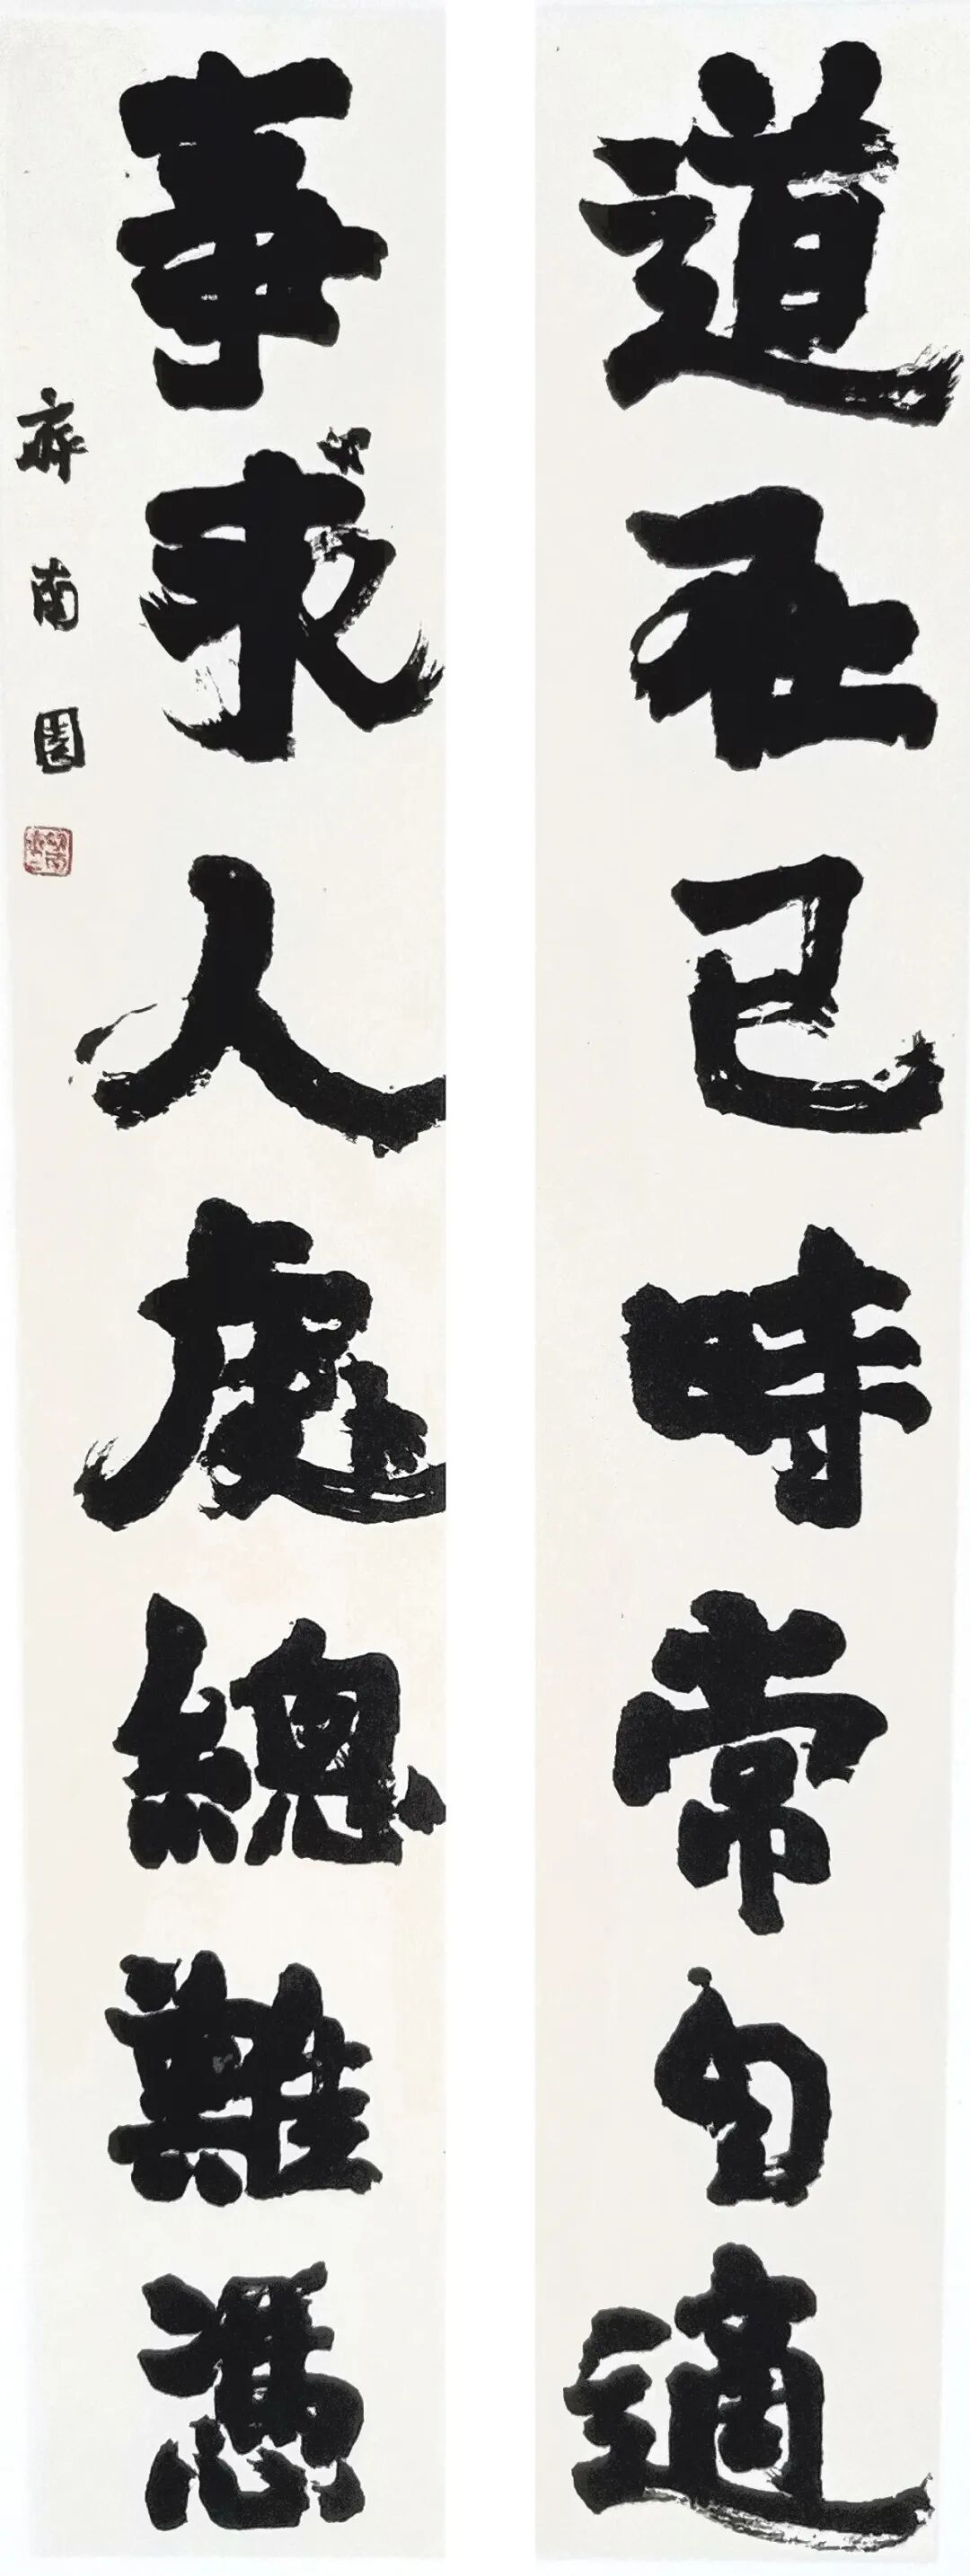 道在己時常自適
事求人處總難憑
南園